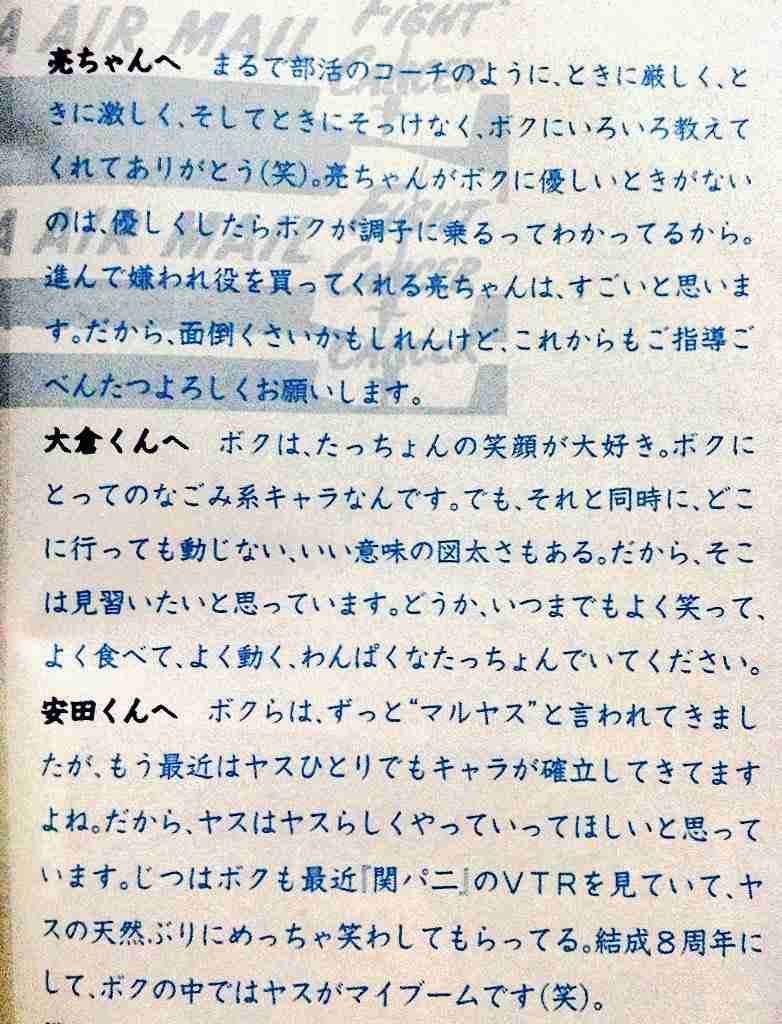 A AIR MAIL FIGHT CANCER
亮ちゃんへ　まるで部活のコーチのように、ときに厳しく、と
きに激しく、そしてときにそっけなく、ボクにいろいろ教えて
くれてありがとう(笑)。亮ちゃんがボクに優しいときがない
A AIR MAIL FIGHT CANCER
のは、優しくしたらボクが調子に乗るってわかってるから。
進んで嫌われ役を買ってくれる亮ちゃんは、すごいと思いま
す。だから、面倒くさいかもしれんけど、これからもご指導ご
CANCER
べんたつよろしくお願いします。
大倉くんへ　ボクは、たっちょんの笑顔が大好き。ボクに
とってのなごみ系キャラなんです。でも、それと同時に、どこ
に行っても動じない、いい意味の図太さもある。だから、そこ
は見習いたいと思っています。どうか、いつまでもよく笑って、
よく食べて、よく動く、わんぱくなたっちょんでいてください。
安田くんへ　ボクらは、ずっと“マルヤス”と言われてきまし
たが、もう最近はヤスひとりでもキャラが確立してきてます
よね。だから、ヤスはヤスらしくやっていってほしいと思って
います。じつはボクも最近『関パニ』のVTRを見ていて、ヤ
スの天然ぶりにめっちゃ笑わしてもらってる。結成8周年に
して、ボクの中ではヤスがマイブームです(笑)。